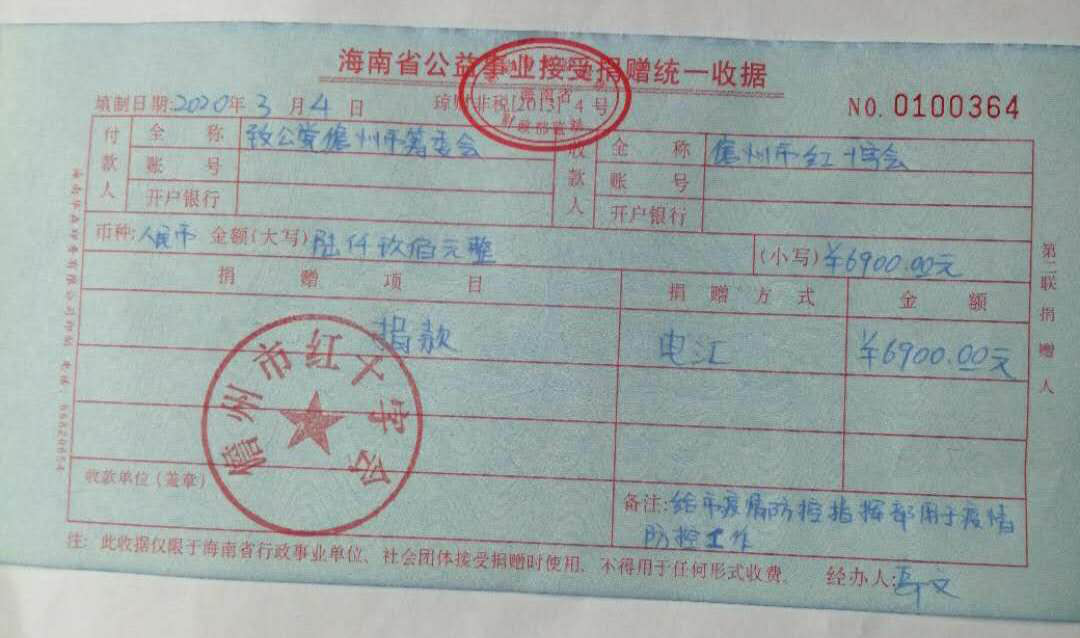 海南省公益事业接受捐赠统一收据
填制日期:2020年3月4日 琼财非税[2013]4号 NO. 0100364
付款人 全称 致公党儋州市筹委会 收款人 全称 儋州市红十字会
账号 账号
开户银行 开户银行
币种:人民币 金额(大写)陆仟玖佰元整 (小写)￥6900.00元
捐赠项目 捐赠方式 金额
捐款 电汇 ￥6900.00元
儋州市红十字会
收款单位(盖章)
备注:给市疫情防控指挥部用于疫情
防控工作
注: 此收据仅限于海南省行政事业单位、社会团体接受捐赠时使用,不得用于任何形式收费。 经办人:
第二联捐赠人
海南省
财政部监制